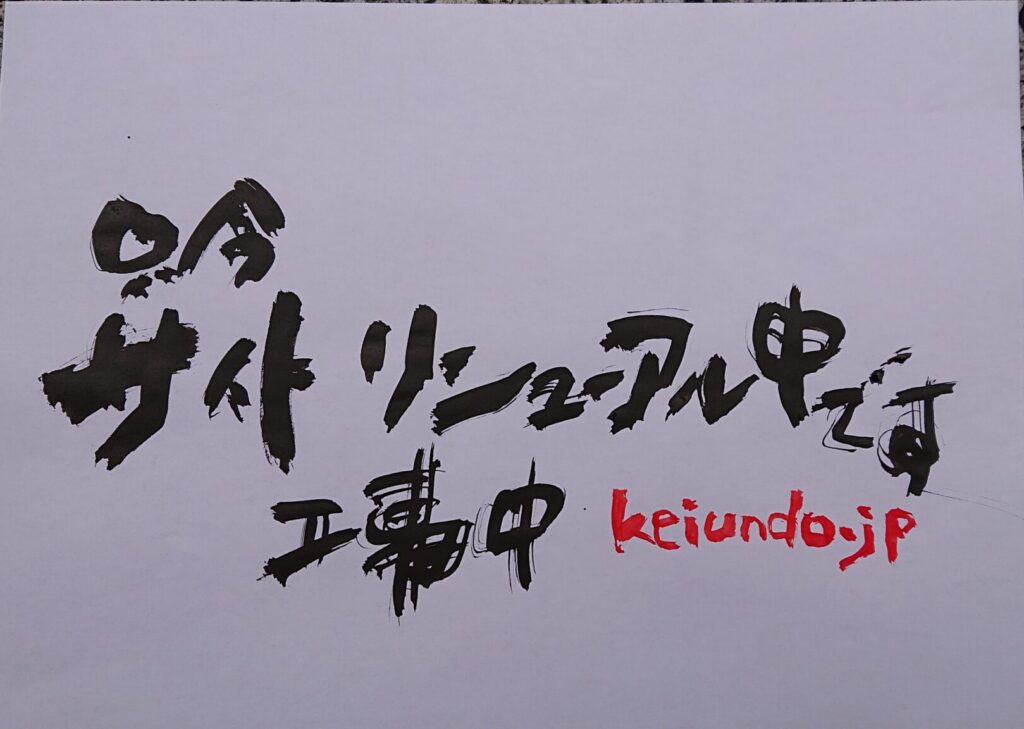 サイトリニューアル中です
工事中 keiundo.jp